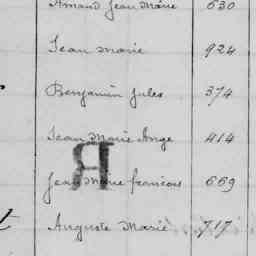 Amand Jean Marie 630
Jean Marie 924
Benjamin Jules 374
Jean Marie Ange 414
Jean Marie francois 669
Auguste Marie 717